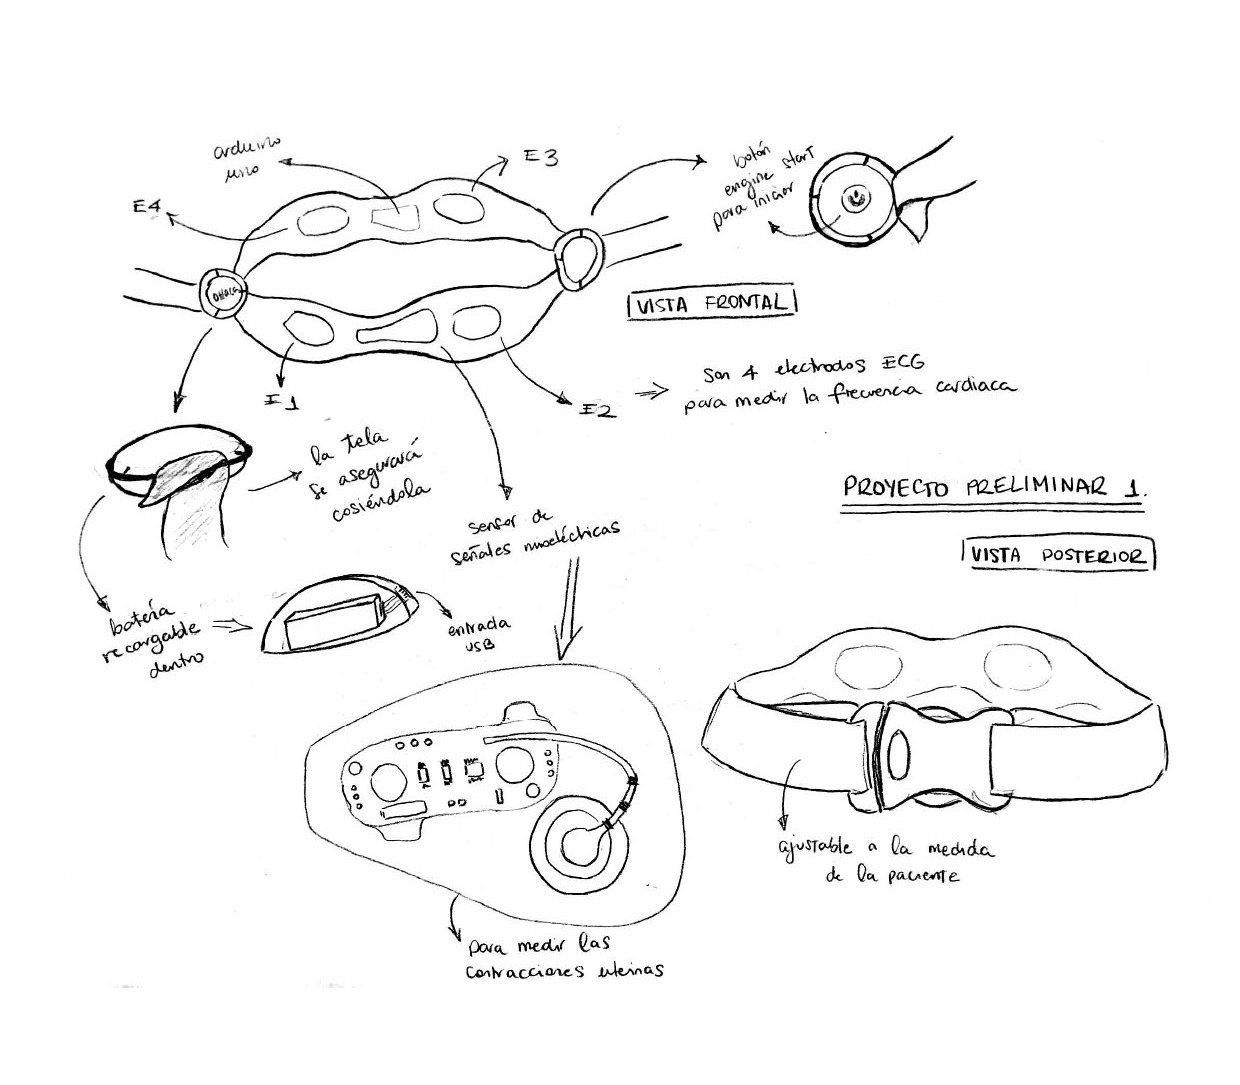 arduino
uno
E3
E4
botón
engine start
para iniciar
VISTA FRONTAL
E1
E2
Son 4 electrodos ECG
para medir la frecuencia cardiaca
la tela
se asegurará
cosiéndola
sensor de
señales mioeléctricas
PROYECTO PRELIMINAR 1.
VISTA POSTERIOR
batería
recargable
dentro
entrada
USB
ajustable a la medida
de la paciente
para medir las
contracciones uterinas